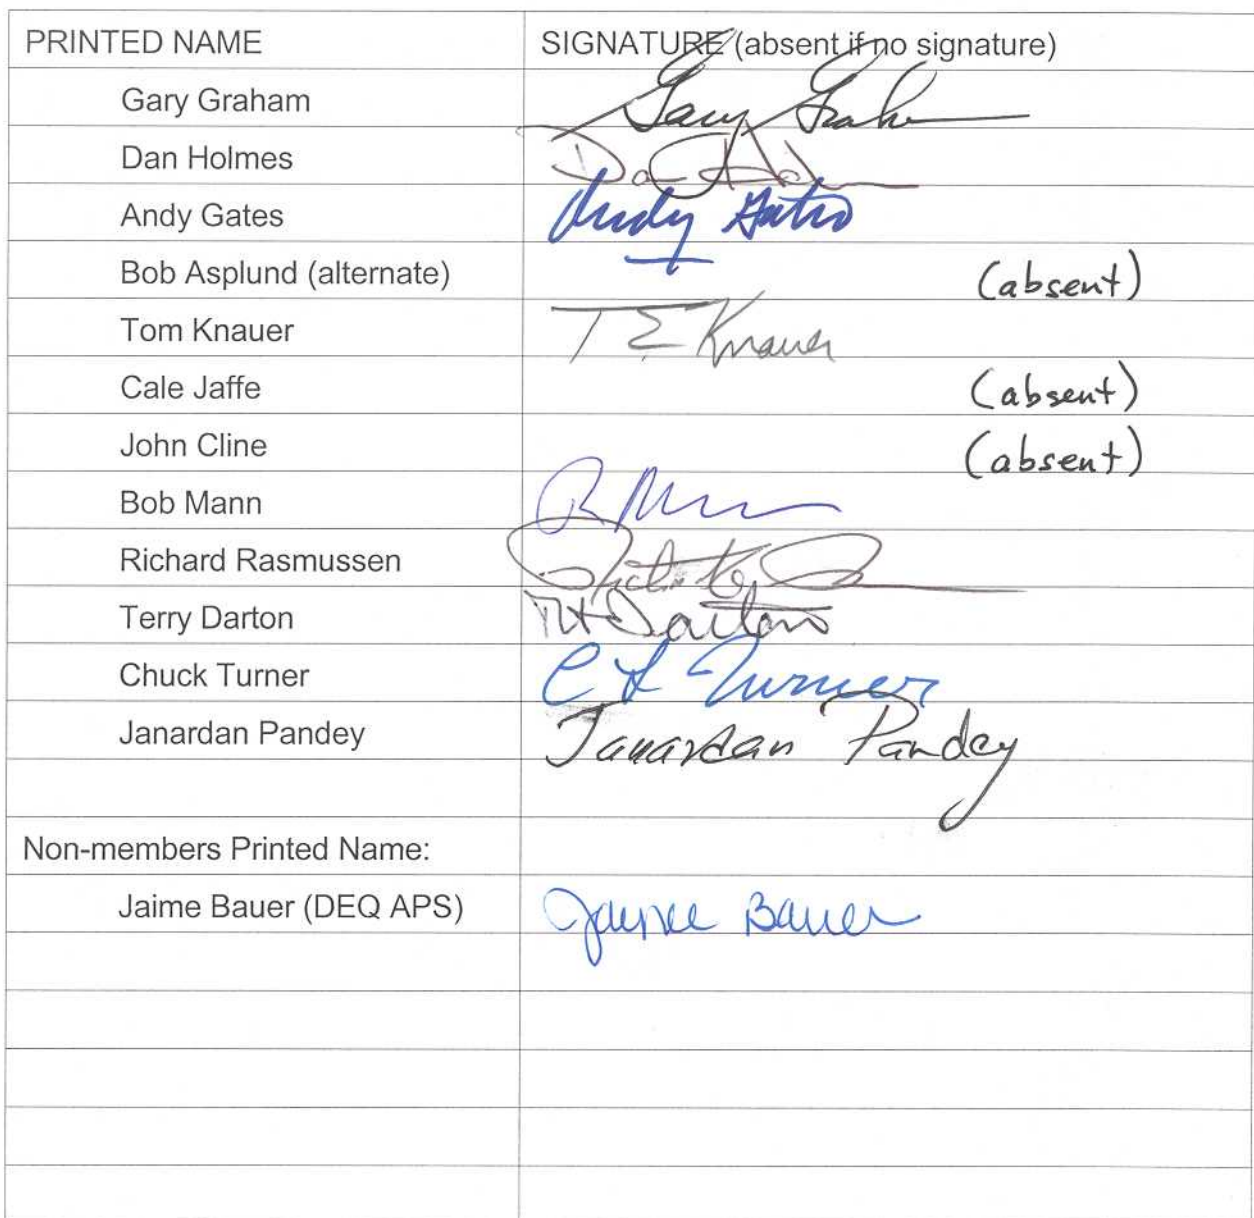 PRINTED NAME SIGNATURE (absent if no signature)
Gary Graham Gary Graham
Dan Holmes
Andy Gates Andy Gates
Bob Asplund (alternate) (absent)
Tom Knauer T E Knauer
Cale Jaffe (absent)
John Cline (absent)
Bob Mann
Richard Rasmussen
Terry Darton Darton
Chuck Turner C L Turner
Janardan Pandey Janardan Pandey
Non-members Printed Name:
Jaime Bauer (DEQ APS) Bauer